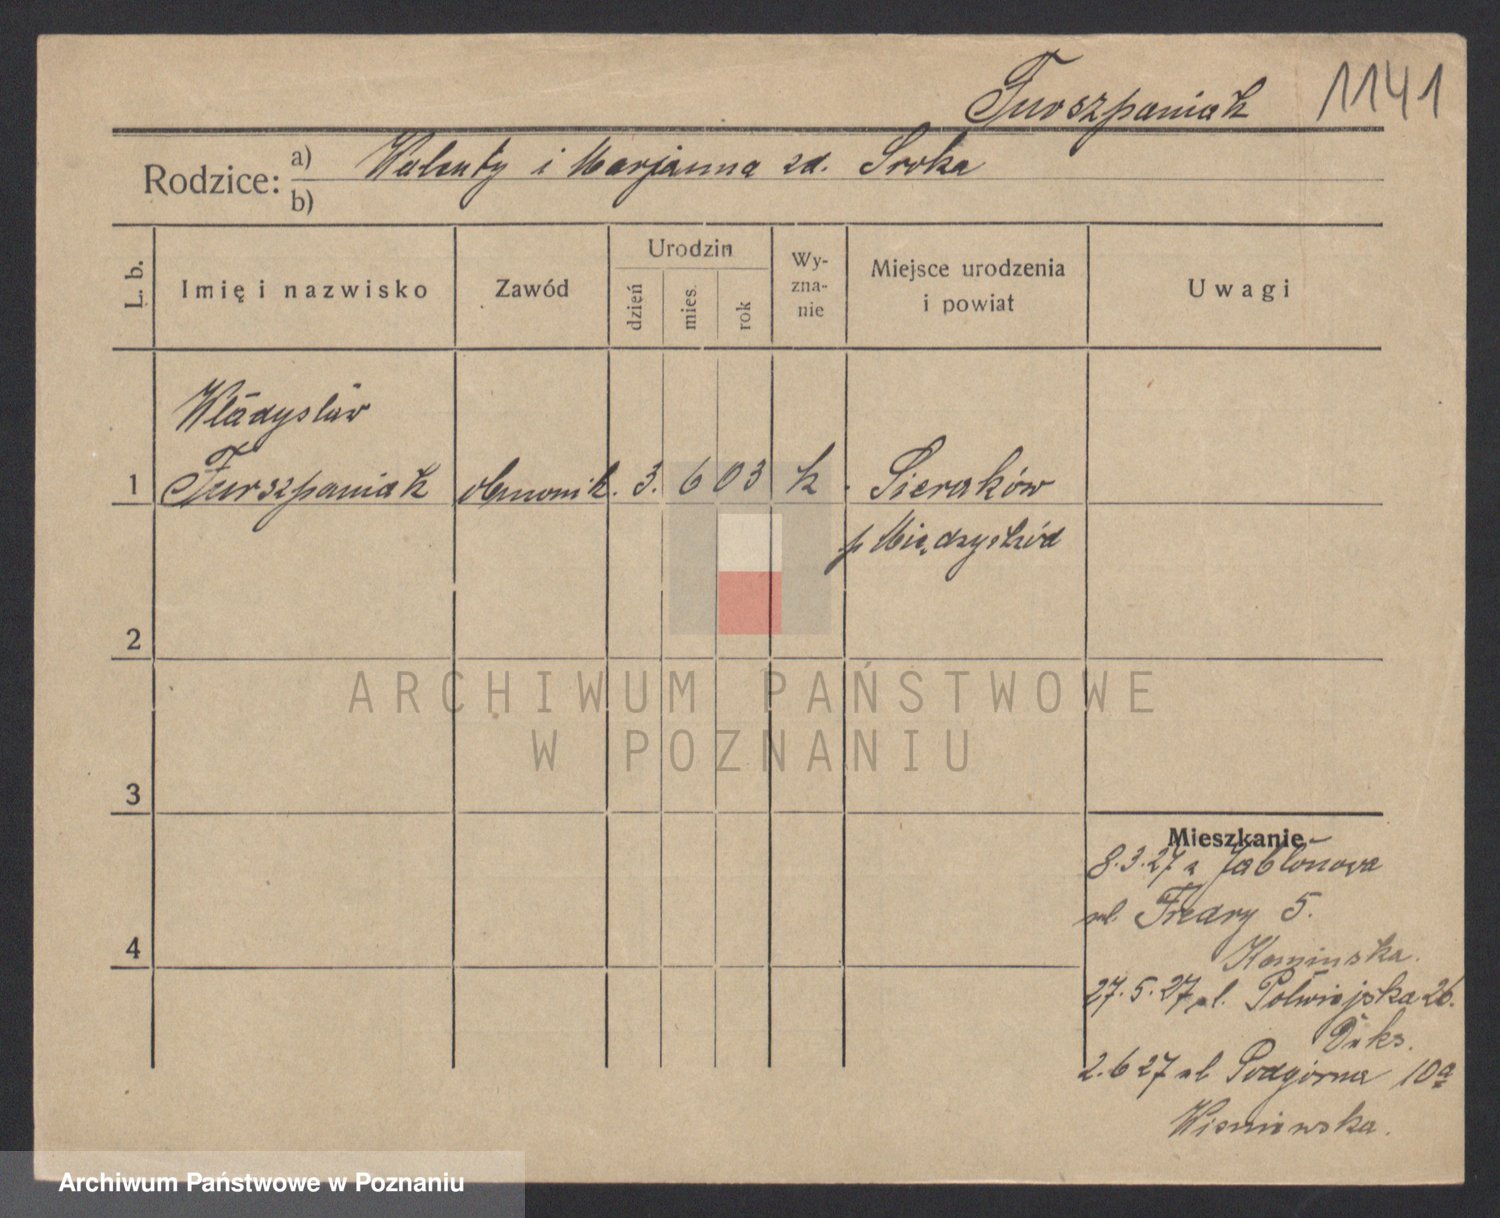 Furszpaniak 1141
Rodzice: a) Walenty i Marjanna zd. Sroka
b)
L. b.
Imię i nazwisko
Zawód
Urodzin
dzień
mies.
rok
Wy-
zna-
nie
Miejsce urodzenia
i powiat
Uwagi
Władysław
1 Furszpaniak 3. 6 03 k. Sieraków
p Międzychód
2
3
4
ARCHIWUM PAŃSTWOWE
W POZNANIU
Mieszkanie
8.3.27 z Jabłonowa
ul. Fredry 5.
Kaminska.
27.5.27 ul. Półwiejska 26.
2.6 27 ul Podgórna 10a
Wisniewska.
Archiwum Państwowe w Poznaniu